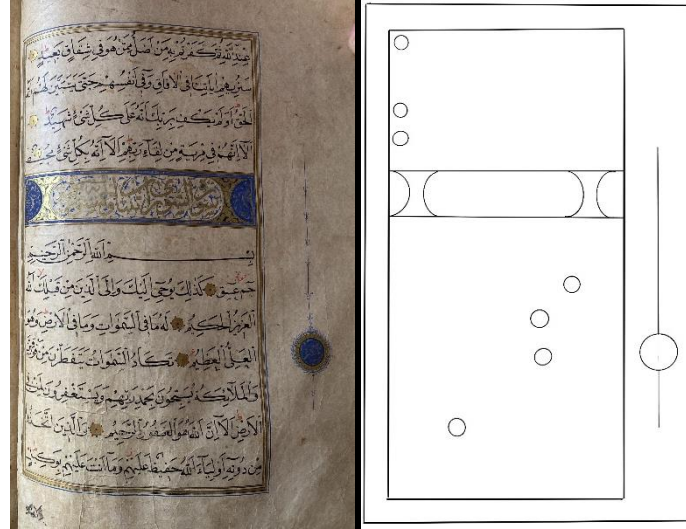 عِنْدِ اللَّهِ ثُمَّ كَفَرْتُمْ بِهِ مَنْ أَضَلُّ مِمَّنْ هُوَ فِي شِقَاقٍ بَعِيدٍ
سَنُرِيهِمْ اٰيَاتِنَا فِي الْاٰفَاقِ وَفِي أَنْفُسِهِمْ حَتَّى يَتَبَيَّنَ لَهُمْ أَنَّهُ
الْحَقُّ أَوَلَمْ يَكْفِ بِرَبِّكَ أَنَّهُ عَلَى كُلِّ شَيْءٍ شَهِيدٌ
أَلَا إِنَّهُمْ فِي مِرْيَةٍ مِنْ لِقَاءِ رَبِّهِمْ أَلَا إِنَّهُ بِكُلِّ شَيْءٍ مُحِيطٌ
بِسْمِ اللَّهِ الرَّحْمٰنِ الرَّحِيمِ
حم عسق كَذٰلِكَ يُوحِي إِلَيْكَ وَإِلَى الَّذِينَ مِنْ قَبْلِكَ اللَّهُ
الْعَزِيزُ الْحَكِيمُ لَهُ مَا فِي السَّمٰوَاتِ وَمَا فِي الْأَرْضِ وَهُوَ
الْعَلِيُّ الْعَظِيمُ تَكَادُ السَّمٰوَاتُ يَتَفَطَّرْنَ مِنْ فَوْقِهِنَّ
وَالْمَلَائِكَةُ يُسَبِّحُونَ بِحَمْدِ رَبِّهِمْ وَيَسْتَغْفِرُونَ لِمَنْ فِي
الْأَرْضِ أَلَا إِنَّ اللَّهَ هُوَ الْغَفُورُ الرَّحِيمُ وَالَّذِينَ اتَّخَذُوا
مِنْ دُونِهِ أَوْلِيَاءَ اللَّهُ حَفِيظٌ عَلَيْهِمْ وَمَا أَنْتَ عَلَيْهِمْ بِوَكِيلٍ